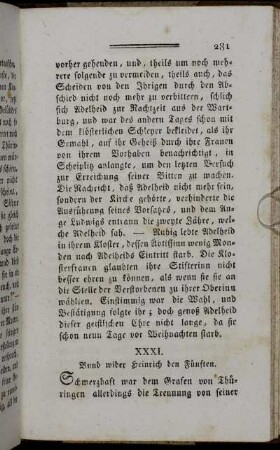 281
vorher gehenden, und, theils um noch meh-
rere folgende zu vermeiden, theils auch, das
Scheiden von den Ihrigen durch den Ab-
schied nicht noch mehr zu verbittern, schlich
sich Adelheid zur Nachtzeit aus der Wart-
burg, und war des andern Tages schon mit
dem klösterlichen Schleyer bekleidet, als ihr
Gemahl, auf ihr Geheiß durch ihre Frauen
von ihrem Vorhaben benachrichtigt, in
Scheiplitz anlangte, um den letzten Versuch
zur Erreichung seiner Bitten zu wachen.
Die Nachricht, daß Adelheid nicht mehr sein,
sondern der Kirche gehörte, verhinderte die
Ausführung seines Vorsatzes, und dem Au-
ge Ludwigs entrann die zweyte Zähre, wel-
che Adelheid sah. — Ruhig lebte Adelheid
in ihrem Kloster, dessen Aebtissinn wenig Mon-
den nach Adelheids Eintritt starb. Die Klo-
sterfrauen glaubten ihre Stifterinn nicht
besser ehren zu können, als wenn sie sie an
die Stelle der Verstorbenen zu ihrer Oberinn
wählten. Einstimmig war die Wahl, und
Bestätigung folgte ihr; doch genoß Adelheid
dieser geistlichen Ehre nicht lange, da sie
schon neun Tage vor Weihnachten starb.
XXXI.
Bund wider Heinrich den Fünften.
Schmerzhaft war dem Grafen von Thü-
ringen allerdings die Trennung von seiner